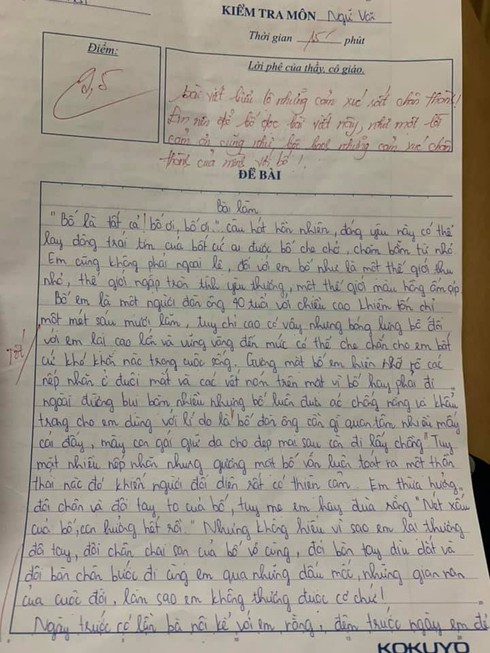 KIỂM TRA MÔN Ngữ Văn
Thời gian 15 phút
Điểm:
Lời phê của thầy, cô giáo.
bài viết bừa lô những cảm xúc rất chân thành!
Em nên để bố đọc bài viết này, như một lời
cảm ơn cũng như bộc những cảm xúc chân
thành của mình với bố!
ĐỀ BÀI
Bài làm
"Bố là tất cả! bố ơi, bố ơi." câu hát hồn nhiên, đáng yêu này có thể
lay động trái tim của bất cứ ai được bố che chở, chăm bẵm từ nhỏ
Em cũng không phải ngoại lệ, đối với em bố như là một thế giới thu
nhỏ, thế giới ngập tràn tình yêu thương, một thế giới màu hồng ấm áp
Bố em là một người đàn ông 40 tuổi với chiều cao khiêm tốn chỉ
một mét sáu mươi lăm, tuy chỉ cao có vậy nhưng bóng lưng bố đối
với em lại cao lớn và vững vàng đến mức có thể che chắn cho em bất
Tốt
cứ khó khăn nào trong cuộc sống. Gương mặt bố em hiện rõ các
nếp nhăn ở đuôi mắt và các vết nám trên mặt vì bố hay phải đi
ngoài đường bụi bặm nhiều nhưng bố luôn đưa áo chống nắng và khẩu
trang cho em dùng với lí do là "bố đàn ông cần gì quan tâm nhiều mấy
cái đấy, mấy con gái giữ da cho đẹp mai sau còn đi lấy chồng" Tuy
mặt nhiều nếp nhăn nhưng gương mặt bố vẫn luôn toát ra một thần
thái nào đó khiến người đối diện rất có thiện cảm. Em thừa hưởng
đôi chân và đôi tay to của bố, tuy mẹ em hay đùa rằng "Nét xấu
của bố, con hưởng hết rồi." Nhưng không hiểu vì sao em lại thương
đôi tay, đôi chân chai sạn của bố vô cùng, đôi bàn tay dìu dắt và
đôi bàn chân bước đi cùng em qua những dấu mốc, những gian nan
của cuộc đời, làm sao em không thương được cơ chứ!
Ngày trước có lần bà nội kể với em rằng, đêm trước ngày em đẻ
KOKUYO